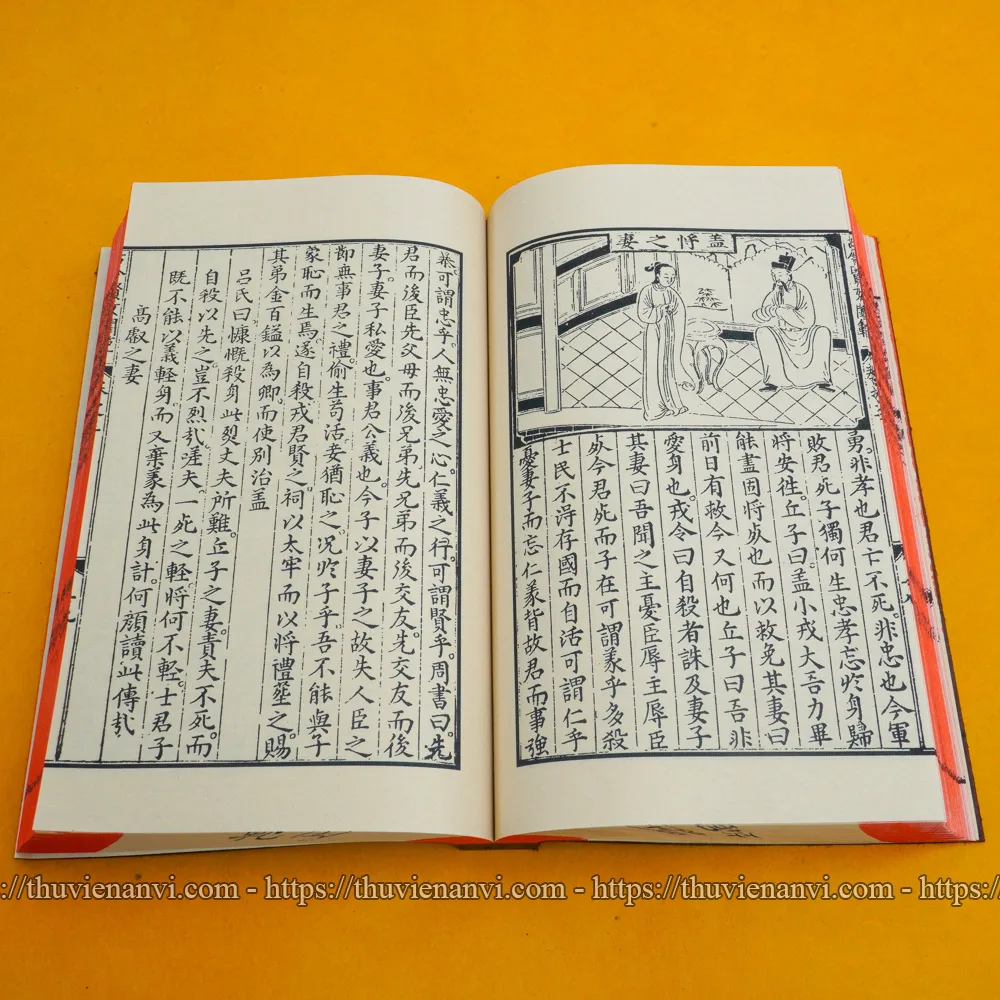 盖将之妻
勇。非孝也君亡不死。非忠也今軍
敗君死子獨何生忠孝忘於身歸
將安徃。丘子曰。盖小戎大吾力畢
能盡固將死也而以救免其妻曰
前日有救今又何也丘子曰吾非
愛身也。戎令曰自殺者誅及妻子
其妻曰吾聞之主憂臣辱主辱臣
死今君死而子在可謂義乎多殺
士民不淂存國而自活可謂仁乎
憂妻子而忘仁義背故君而事強
暴。可謂忠乎。人無忠愛之心。仁義之行。可謂賢乎。周書曰。先
君而後臣先父母而後兄弟先兄弟而後交友。先交友而後
妻子。妻子私愛也。事君公義也。今子以妻子之故失人臣之
節無事君之禮。偷生苟活妾猶恥之。况於子乎。吾不能與子
蒙恥而生焉。遂自殺戎君賢之。祠以太牢而以將禮塟之。賜
其弟金百鎰以為卿。而使別治盖
呂氏曰慷慨殺身此烈丈夫所難。丘子之妻。責夫不死。而
自殺以先之。豈不烈哉。嗟夫。一死之輕。將何不輕。士君子
既不能以義輕身。而又棄義為此身計。何顔讀此傳哉
高叡之妻
https://thuvienanvi.com - https://thuvienanvi.com - https://thuvienanvi.com